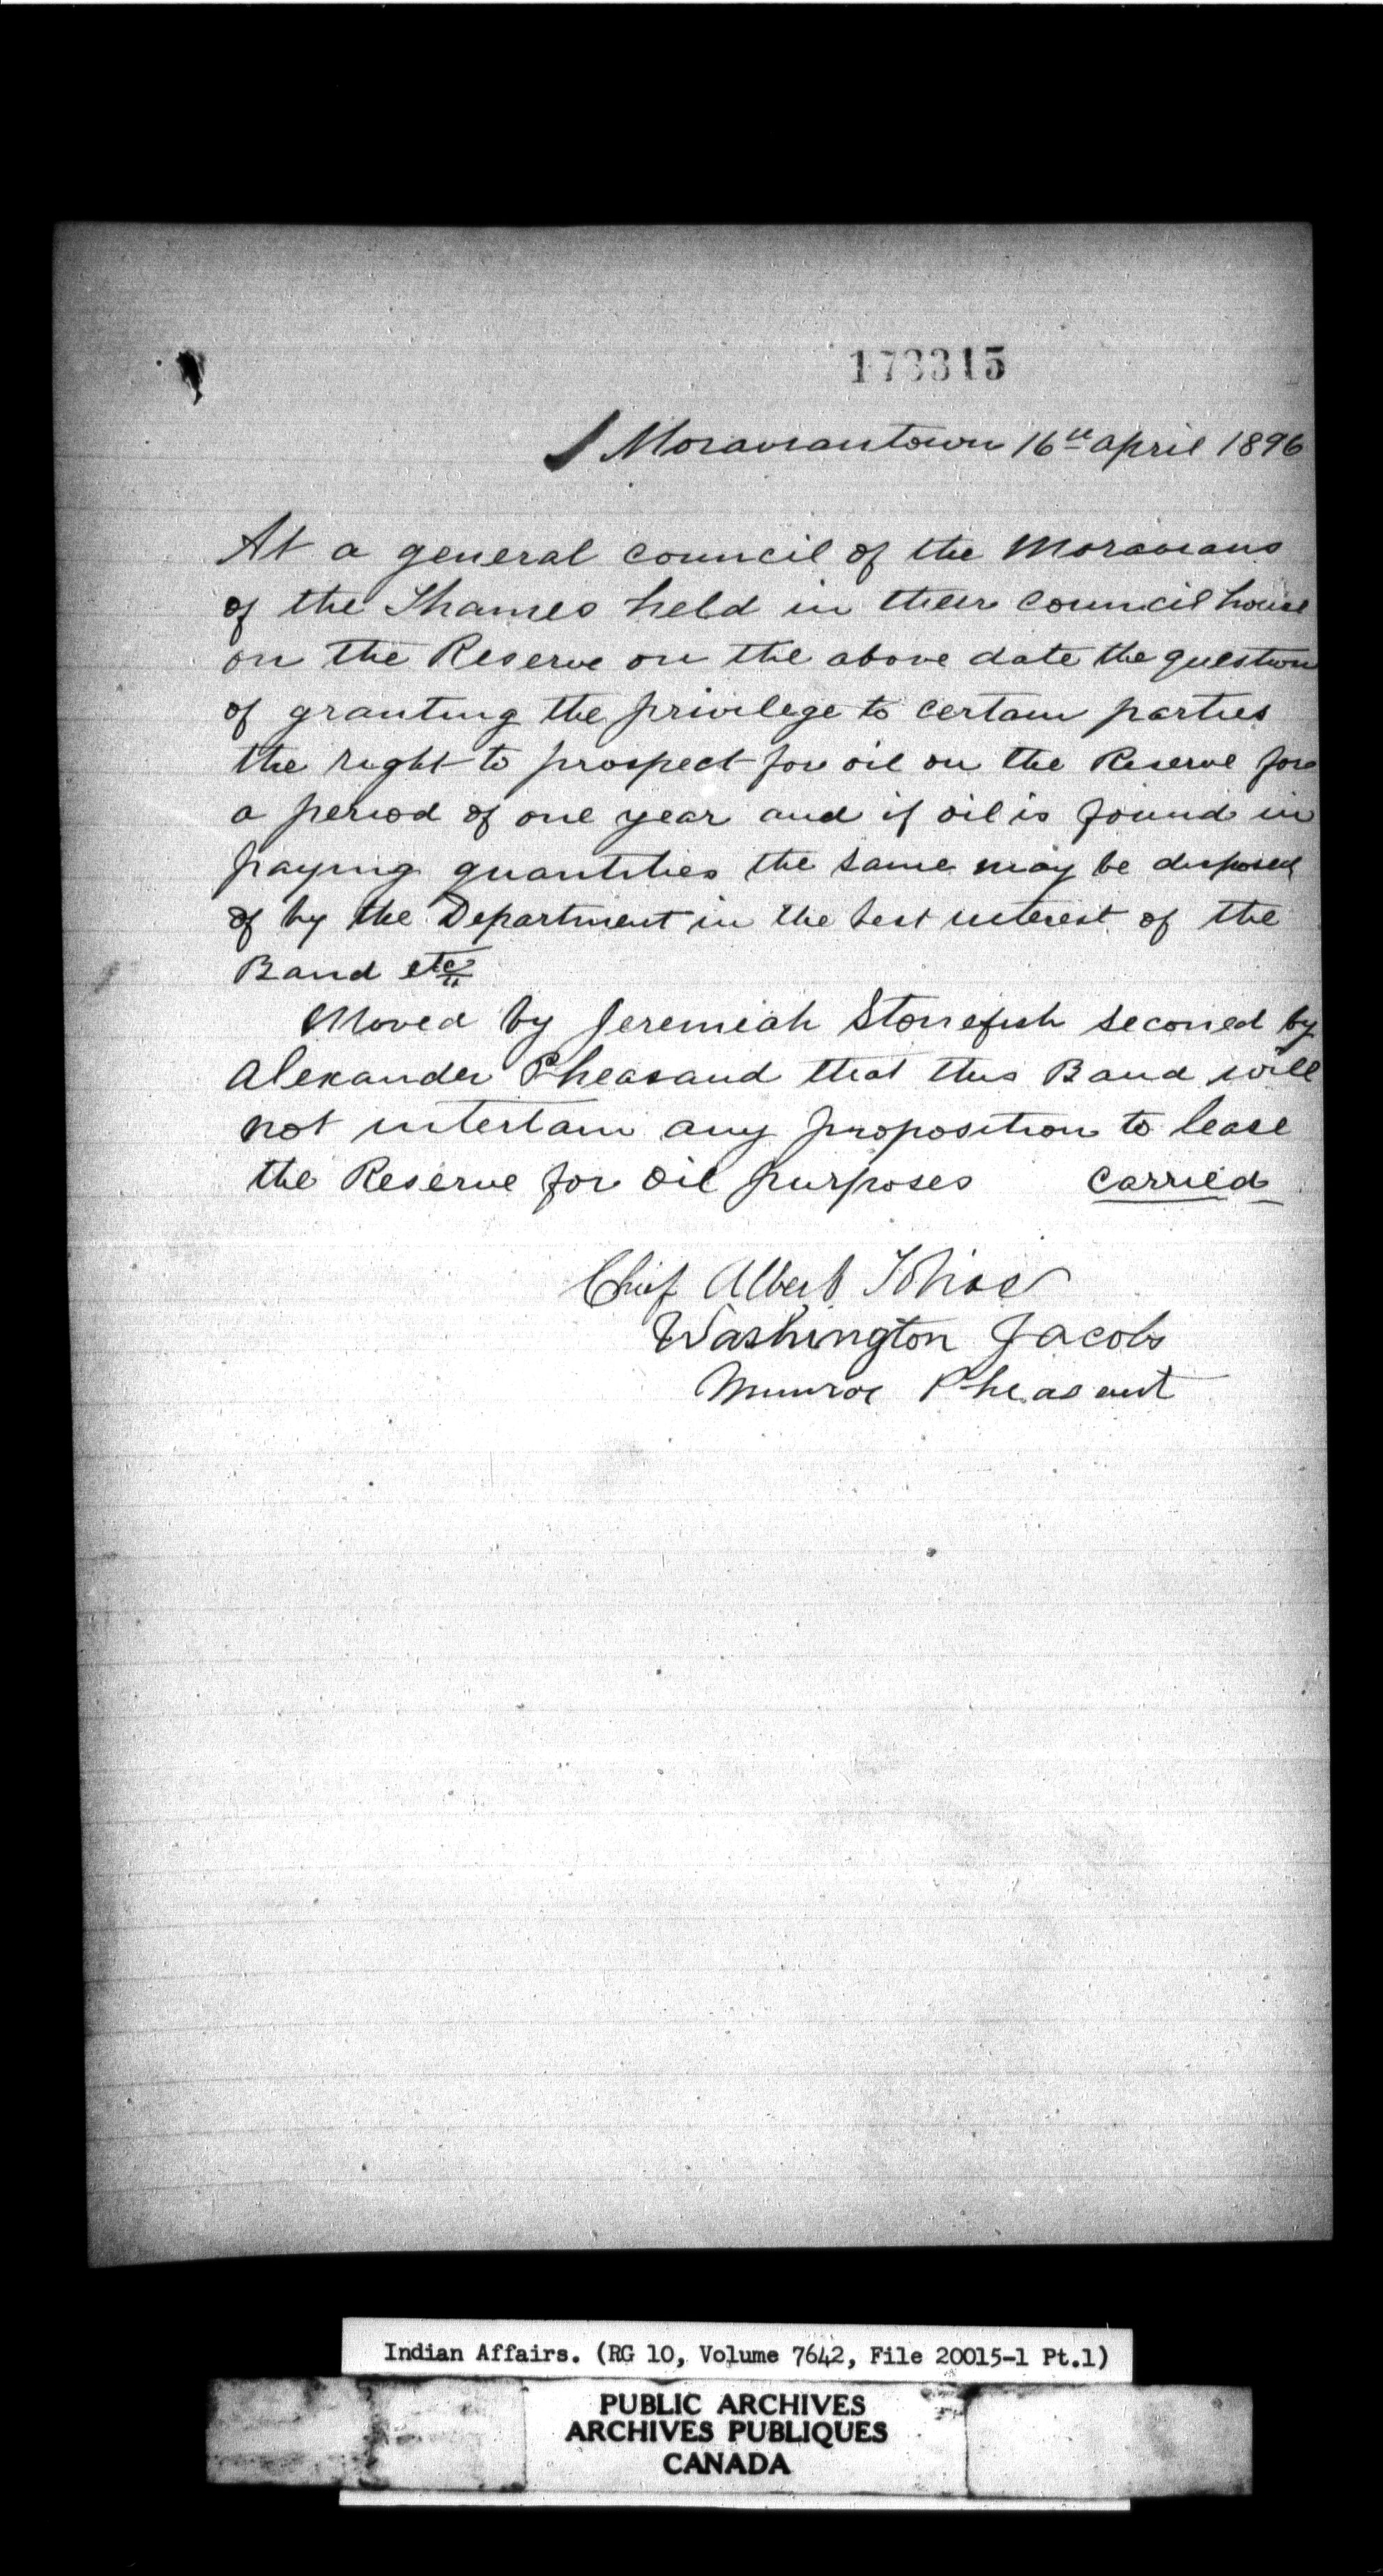 173315
Moraviantown 16th april 1896
At a general council of the Moravians
of the Thames held in their council house
on the Reserve on the above date the question
of granting the privilege to certain parties
the right to prospect for oil on the Reserve for
a period of one year and if oil is found in
paying quantities the same may be disposed
of by the Department in the best interest of the
Band etc
Moved by Jeremiah Stonefish seconed by
Alexander Pheasand that this Band will
not intertain any proposition to lease
the Reserve for oil purposes carried
Chief Albert Tobias
Washington Jacobs
Munroe Pheasant
Indian Affairs. (RG 10, Volume 7642, File 20015-1 Pt.1)
PUBLIC ARCHIVES
ARCHIVES PUBLIQUES
CANADA